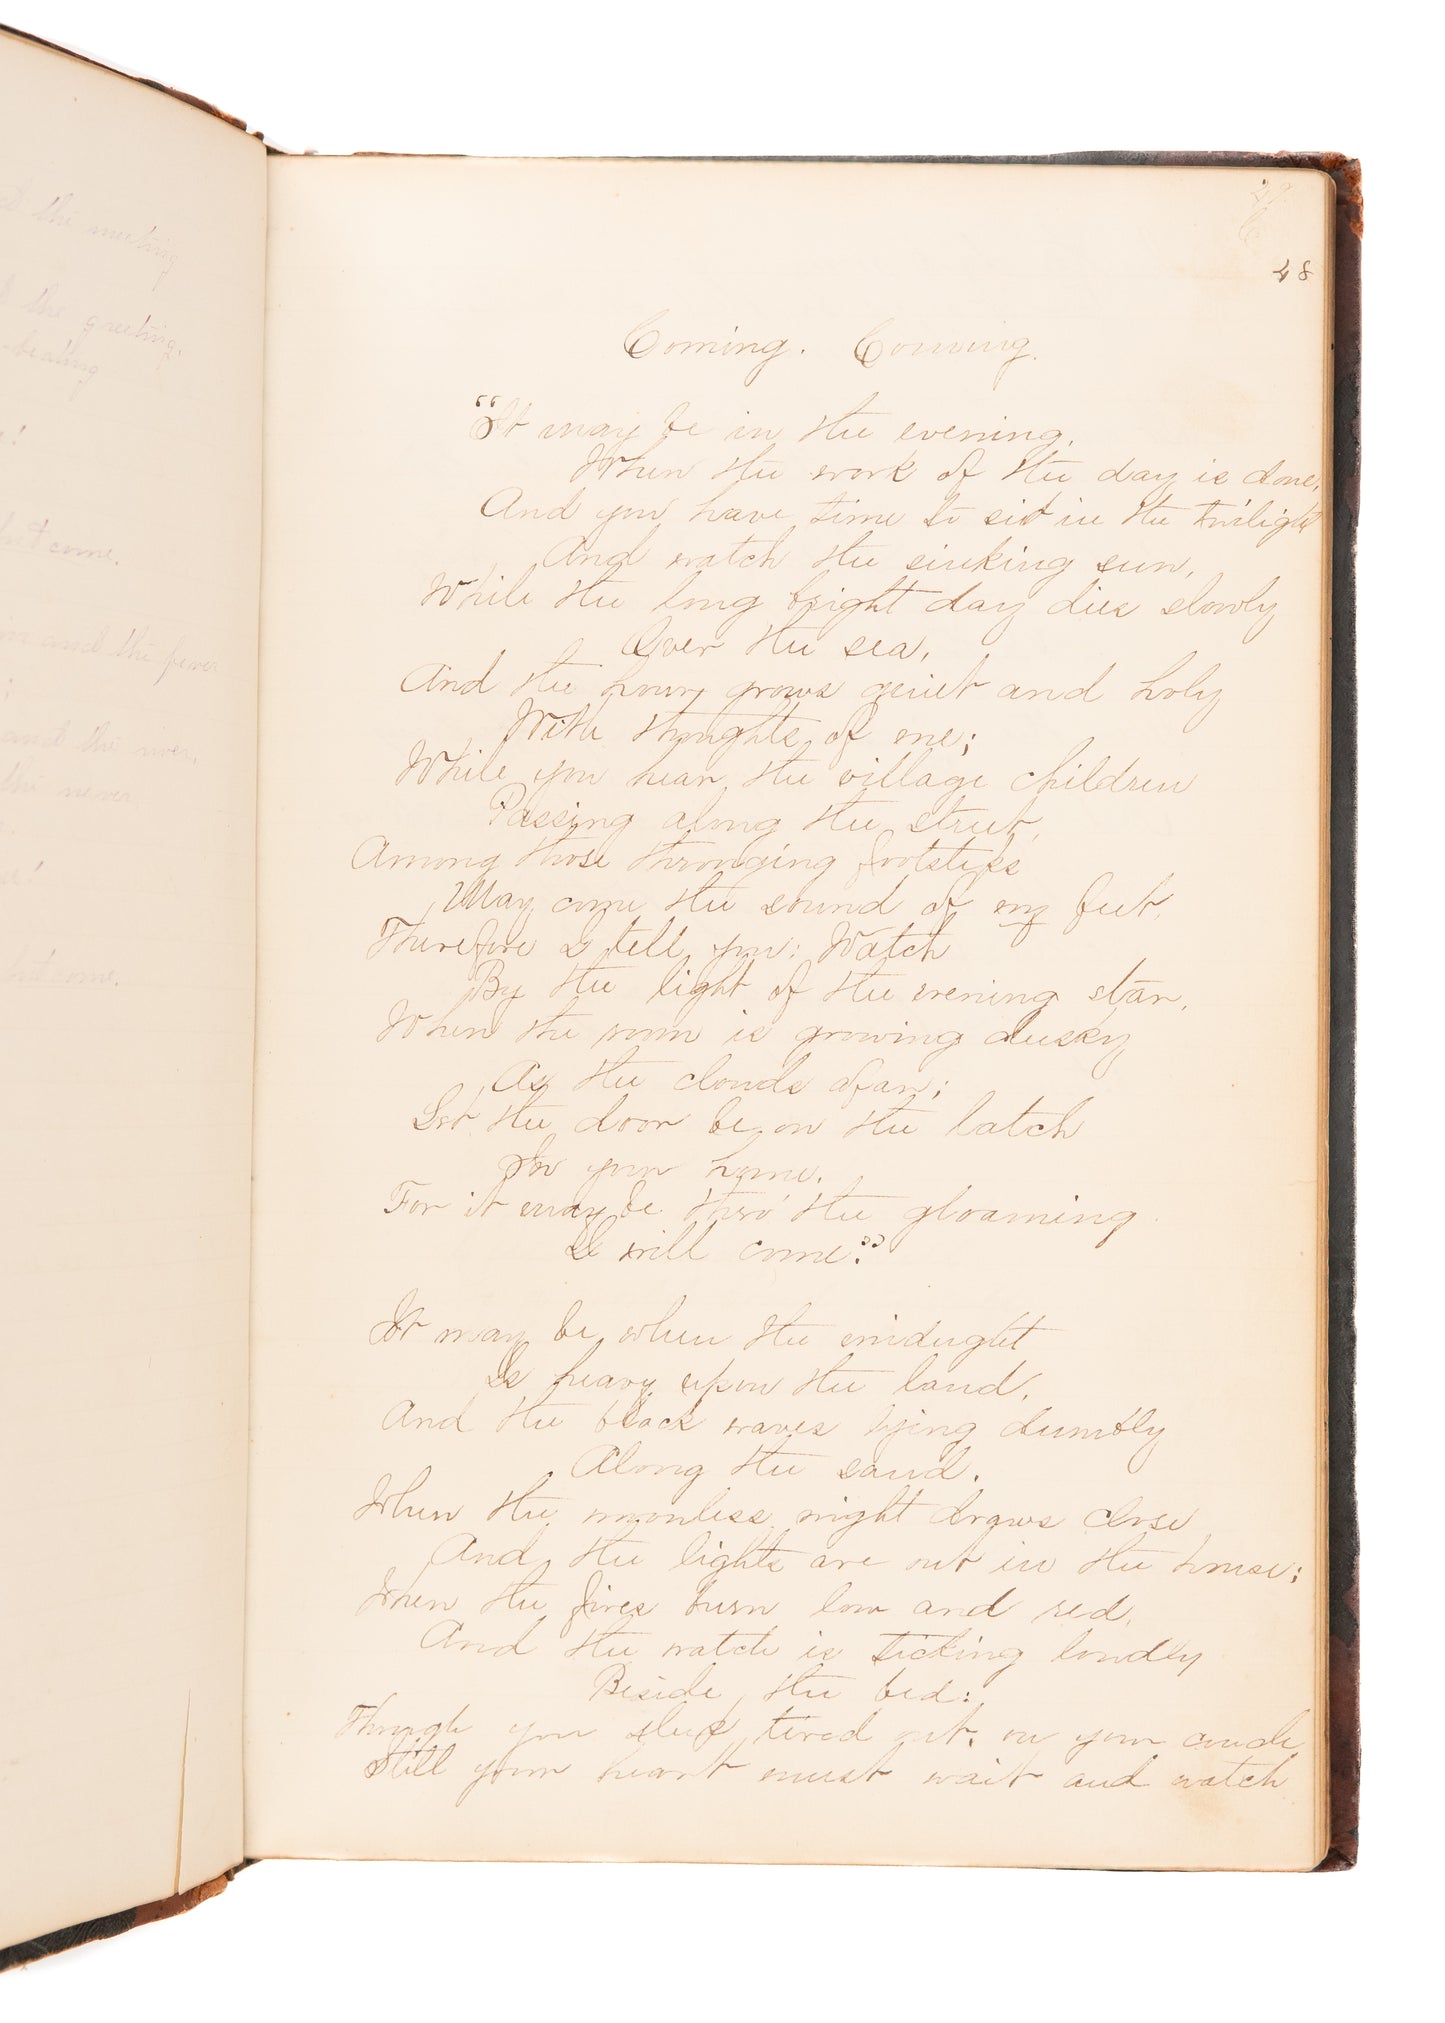 d the meeting
the greeting;
-bealing
!
but come.
and the fever
;
and the river,
the never
!
but come.
48
Coming. Coming.
“It may be in the evening,
When the work of the day is done,
And you have time to sit in the twilight
And watch the sinking sun,
While the long bright day dies slowly
Over the sea,
And the hour grows quiet and holy
With thoughts of me;
While you hear the village children
Passing along the street,
Among those thronging footsteps
May come the sound of my feet,
Therefore I tell you: Watch
By the light of the evening star,
When the room is growing dusky
As the clouds afar;
Let the door be on the latch
In your home,
For it may be thro' the gloaming
I will come.”
It may be when the midnight
Is heavy upon the land,
And the black waves lying dumbly
Along the sand.
When the moonless night draws close
And the lights are out in the house;
When the fires burn low and red,
And the watch is ticking loudly
Beside the bed:
Though you sleep, tired out, on your couch
Still your heart must wait and watch